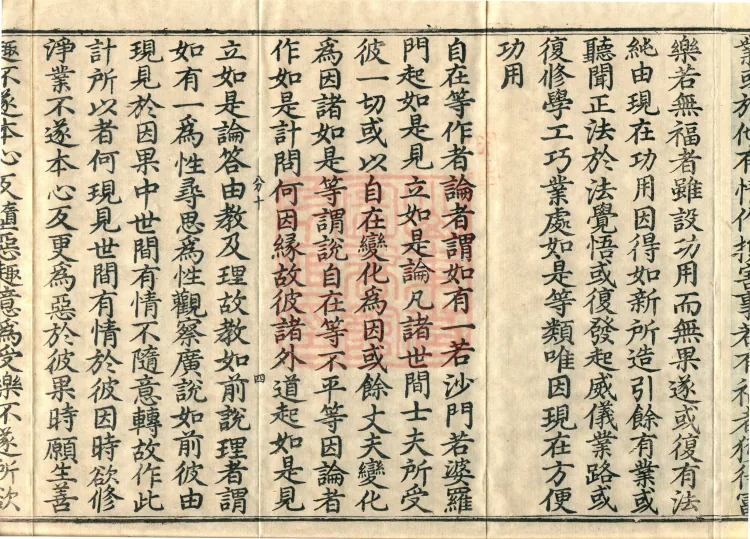 樂若無福者雖設功用而無果遂或復有法
純由現在功用因得如新所造引餘有業或
聽聞正法於法覺悟或復發起威儀業路或
復修學工巧業處如是等類唯因現在方便
功用
自在等作者論者謂如有一若沙門若婆羅
門起如是見立如是論凡諸世間士夫所受
彼一切或以自在變化爲因或餘丈夫變化
爲因諸如是等謂說自在等不平等因論者
作如是計問何因緣故彼諸外道起如是見
八分十 四
立如是論答由教及理故教如前說理者謂
如有一爲性尋思爲性觀察廣說如前彼由
現見於因果中世間有情不隨意轉故作此
計所以者何現見世間有情於彼因時欲修
淨業不遂本心反更爲惡於彼果時願生善
趣不遂本心反墮惡趣意爲受樂不遂所欲